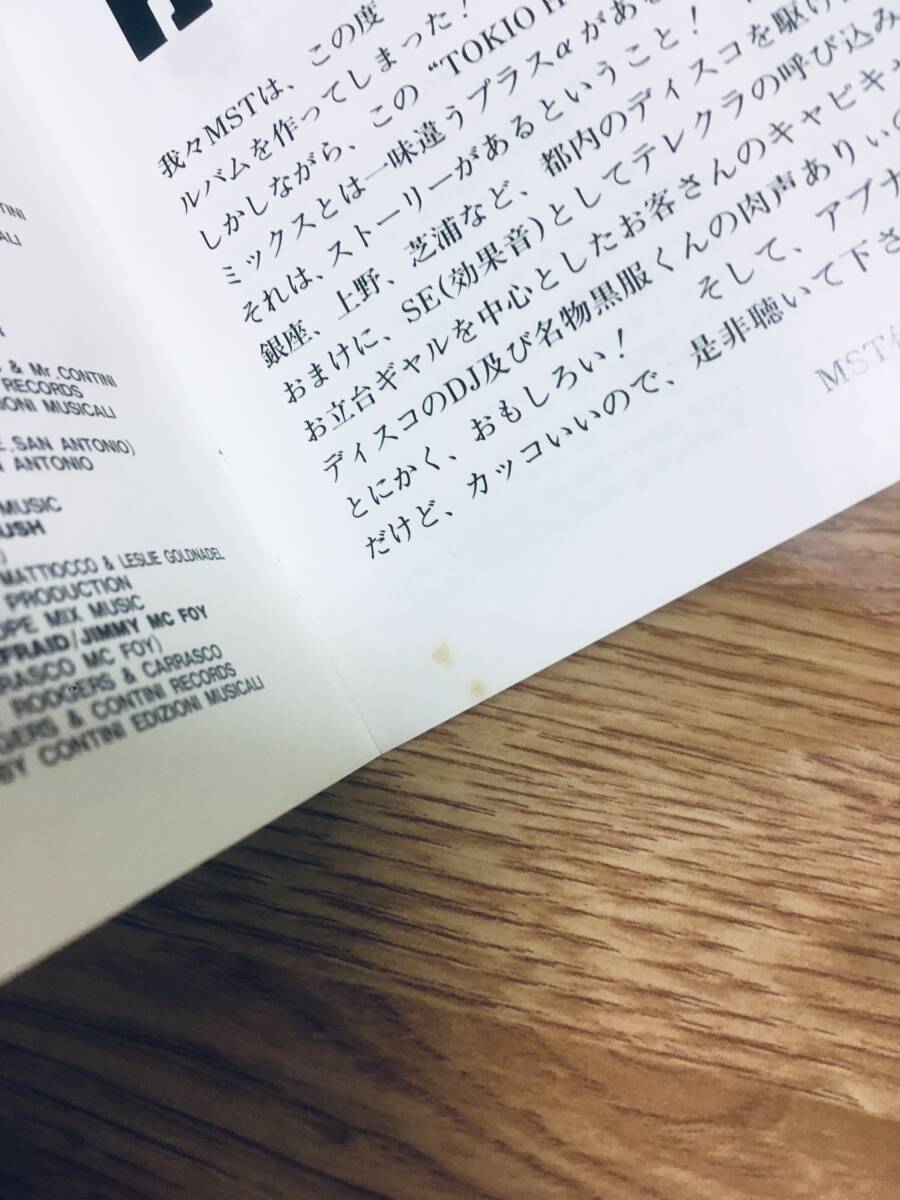 & Mr.CONTINI
RECORDS
IONI MUSICALI
SAN ANTONIO)
ANTONIO
MUSIC
USH
MATTIOCCO & LESLIE GOLDNADEL
PRODUCTION
OPE MIX MUSIC
FRAID/JIMMY MC FOY
RASCO MC FOY)
RODGERS & CARRASCO
GERS & CONTINI RECORDS
BY CONTINI EDIZIONI MUSICALI
我々MSTは、この度
ルバムを作ってしまった!
しかしながら、この “TOKIO H
ミックスとは一味違うプラスαがあ
それは、ストーリーがあるということ!
銀座、上野、芝浦など、都内のディスコを駆け
おまけに、SE(効果音)としてテレクラの呼び込み
お立台ギャルを中心としたお客さんのキャピキャ
ディスコのDJ及び名物黒服くんの肉声ありぃの
とにかく、おもしろい! そして、アブナ
だけど、カッコいいので、是非聴いて下さ
MST